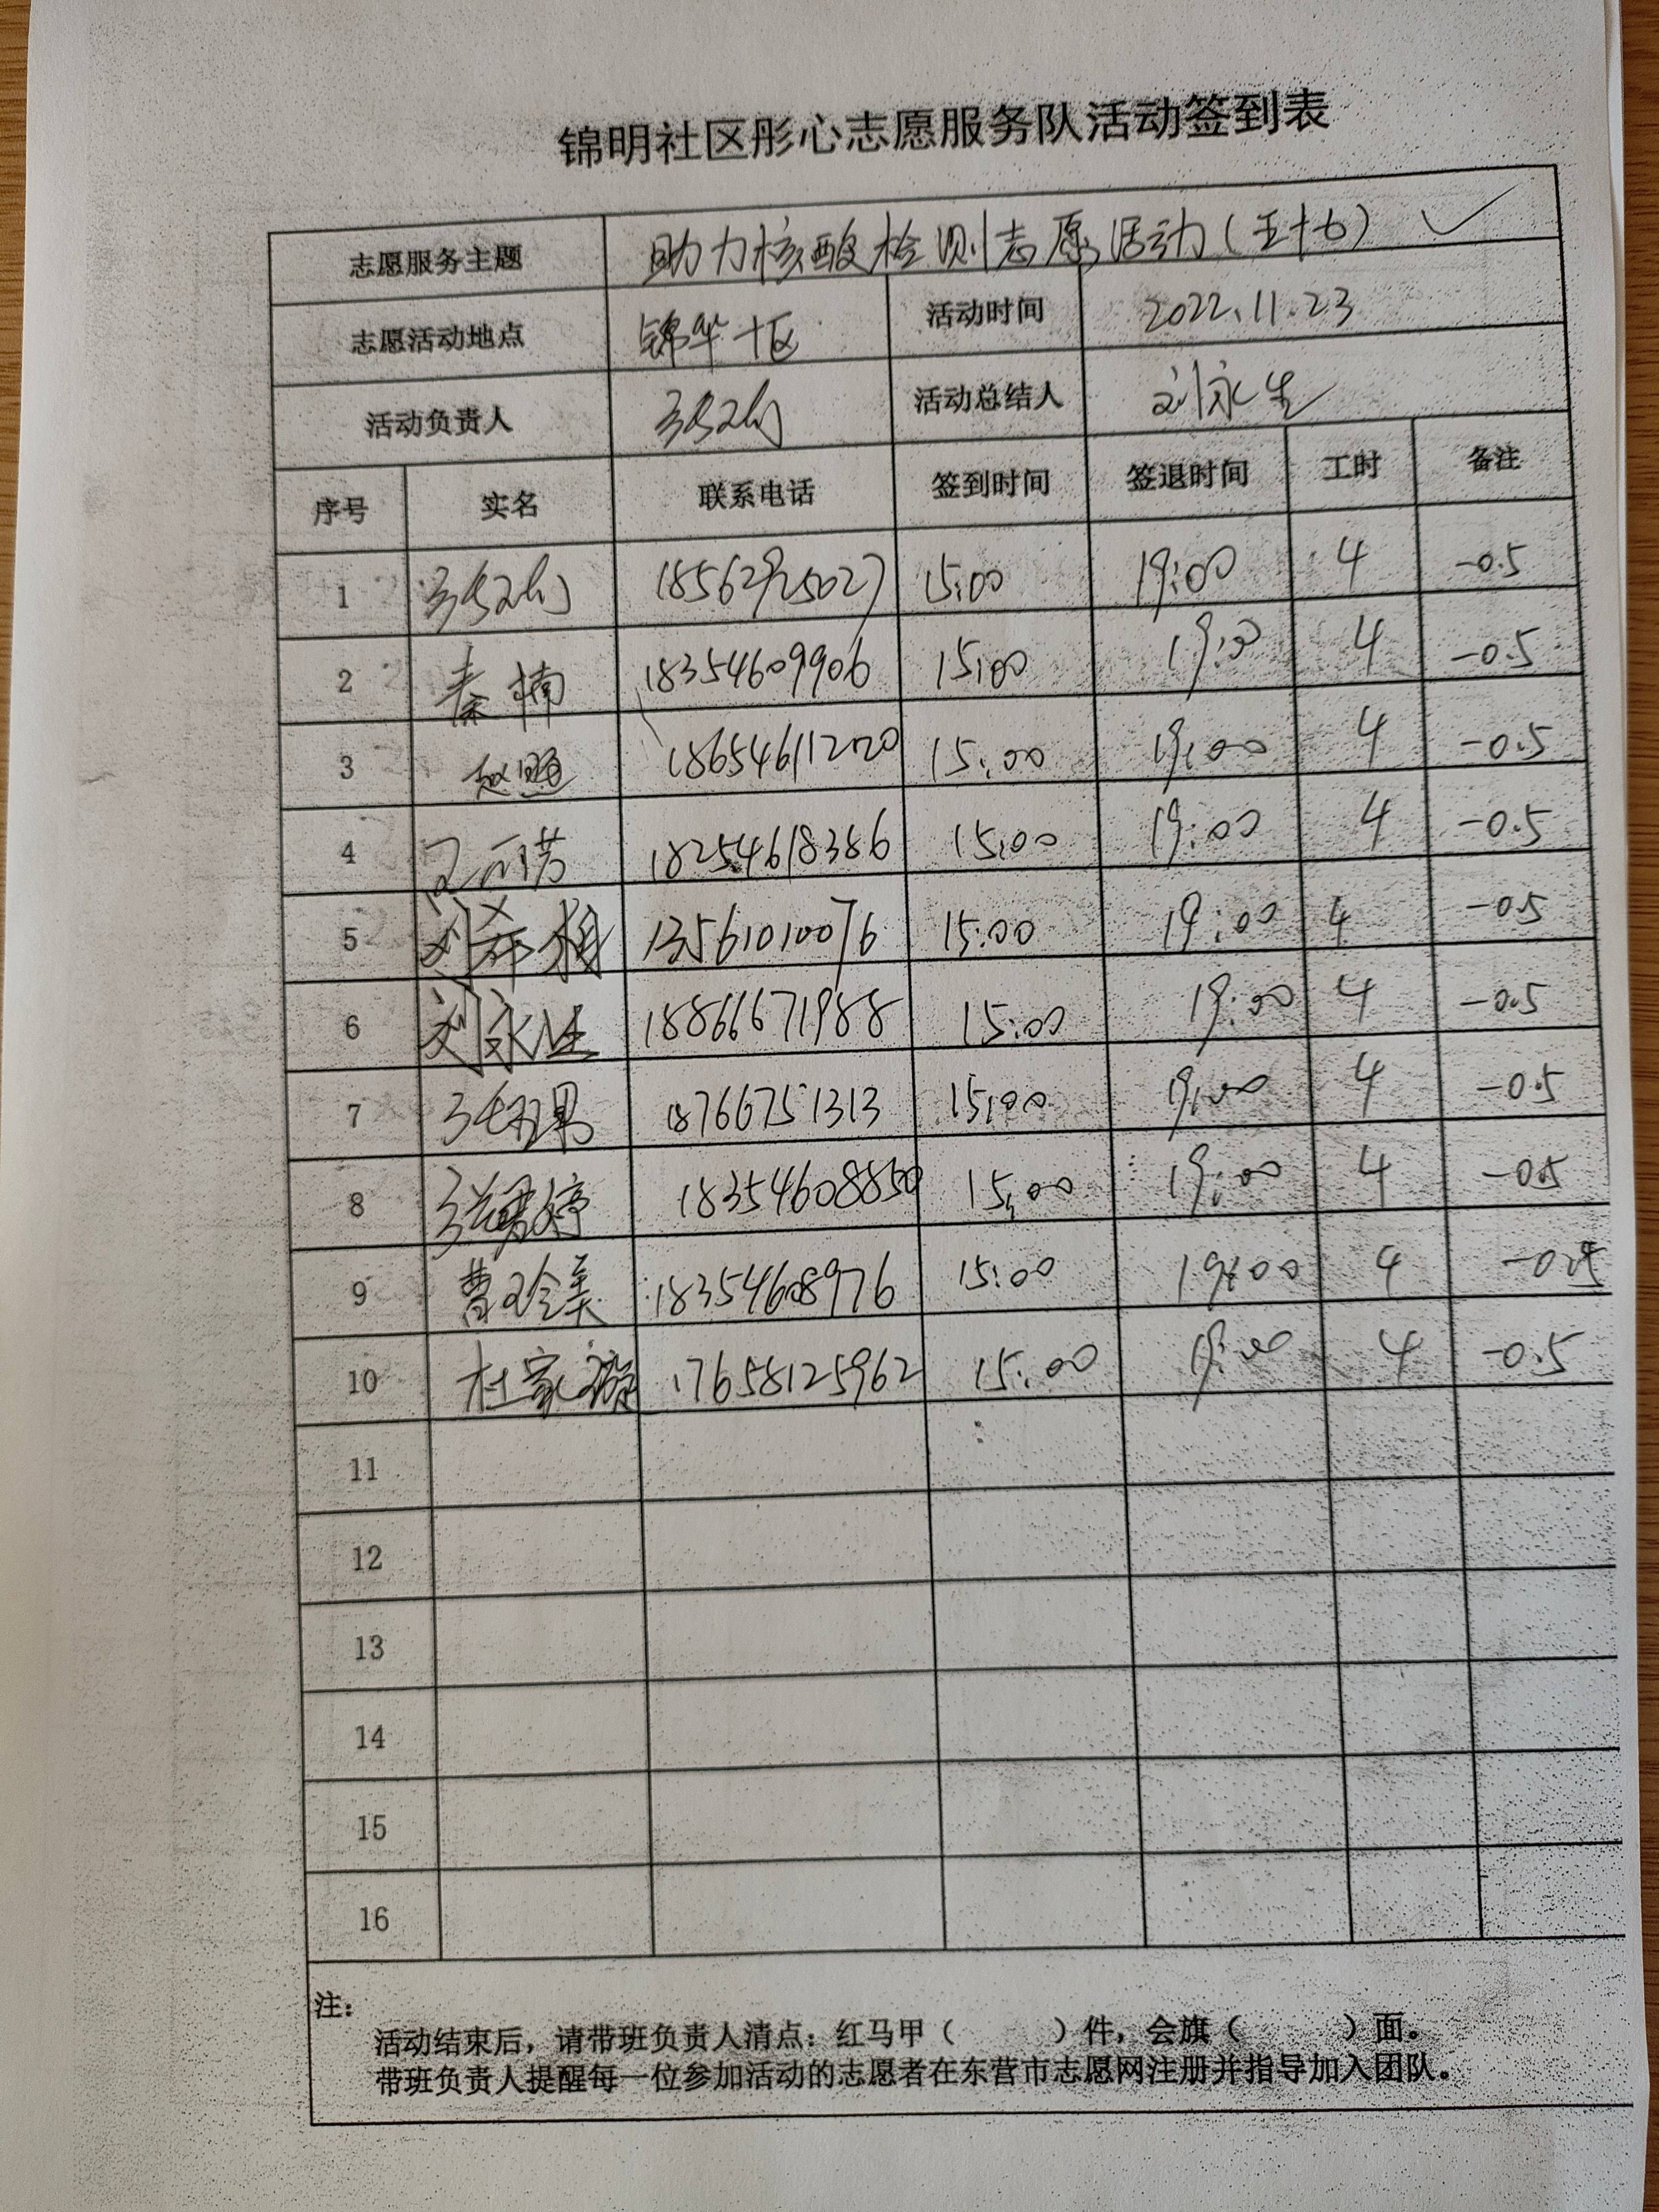 锦明社区彤心志愿服务队活动签到表
志愿服务主题 助力核酸检测志愿活动(五十七) ✓
志愿活动地点 锦华十区 活动时间 2022.11.23
活动负责人 活动总结人 刘永生
序号 实名 联系电话 签到时间 签退时间 工时 备注
1 15:00 19:00 4 -0.5
2 秦楠 18354609906 15:00 19:00 4 -0.5
3 18654611220 15:00 19:00 4 -0.5
4 18254618386 15:00 19:00 4 -0.5
5 刘希梅 13561010076 15:00 19:00 4 -0.5
6 刘永生 18866671988 15:00 19:00 4 -0.5
7 18766751313 15:00 19:00 4 -0.5
8 18354608850 15:00 19:00 4 -0.5
9 曹玲美 18354608976 15:00 19:00 4 -0.5
10 杜家璇 17658125962 15:00 19:00 4 -0.5
11
12
13
14
15
16
注:
活动结束后,请带班负责人清点:红马甲( )件,会旗( )面。
带班负责人提醒每一位参加活动的志愿者在东营市志愿网注册并指导加入团队。